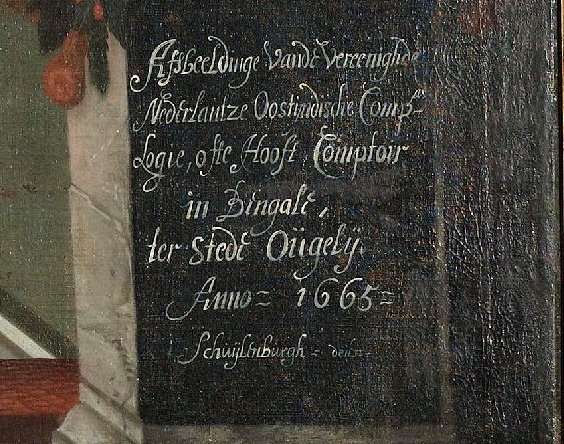 Afsbeeldinge vande vereenighde
Nederlantze Oostindische Comp:
Logie, ofte Hooft Comptoir
in Bengale,
ter stede Oügelÿ.
Anno = 1665 =
Schuÿlenburgh =